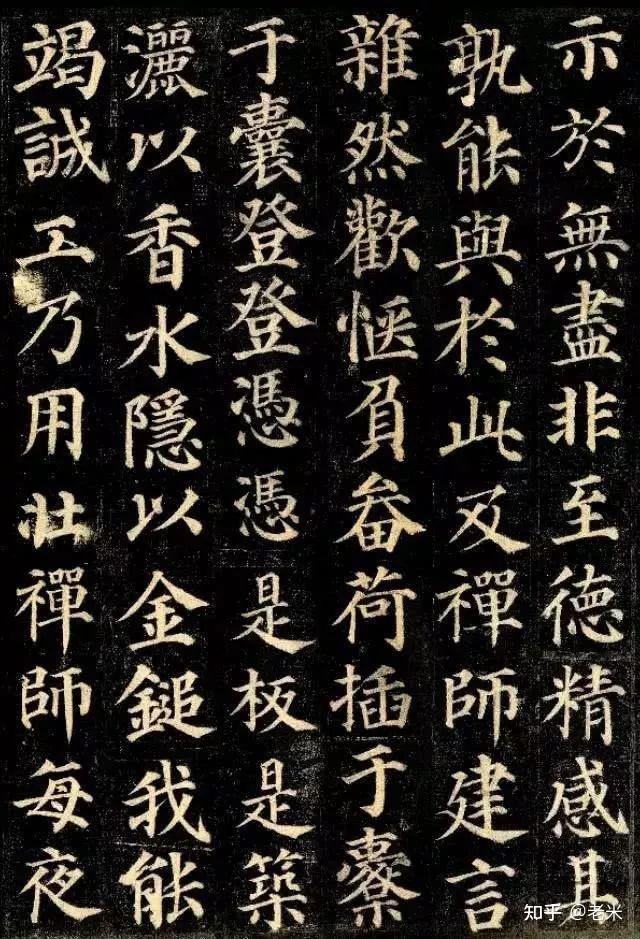 示於無盡非至德精感其
孰能與於此及禪師建言
雜然歡愜負畚荷插于橐
于囊登登憑憑是板是築
灑以香水隱以金鎚我能
竭誠工乃用壯禪師每夜
知乎 @老米